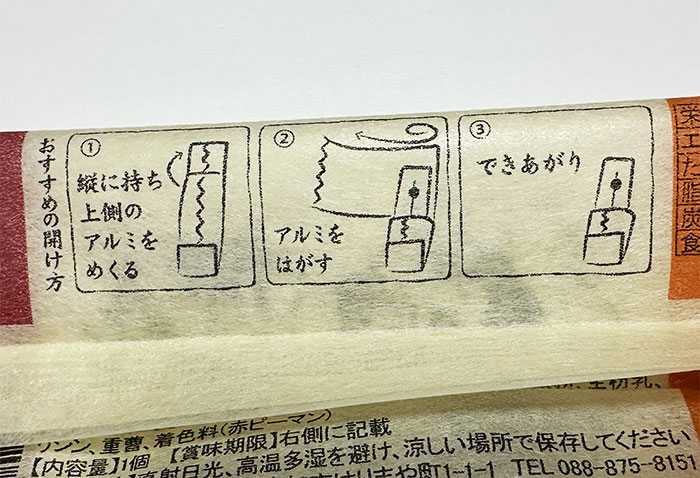 おすすめの開け方
①
縦に持ち
上側の
アルミを
めくる
②
アルミを
はがす
③
できあがり
リシン、重曹、着色料(赤ピーマン)
【内容量】1個 【賞味期限】右側に記載
直射日光、高温多湿を避け、涼しい場所で保存してください
はりまや町1-1-1 TEL 088-875-8151